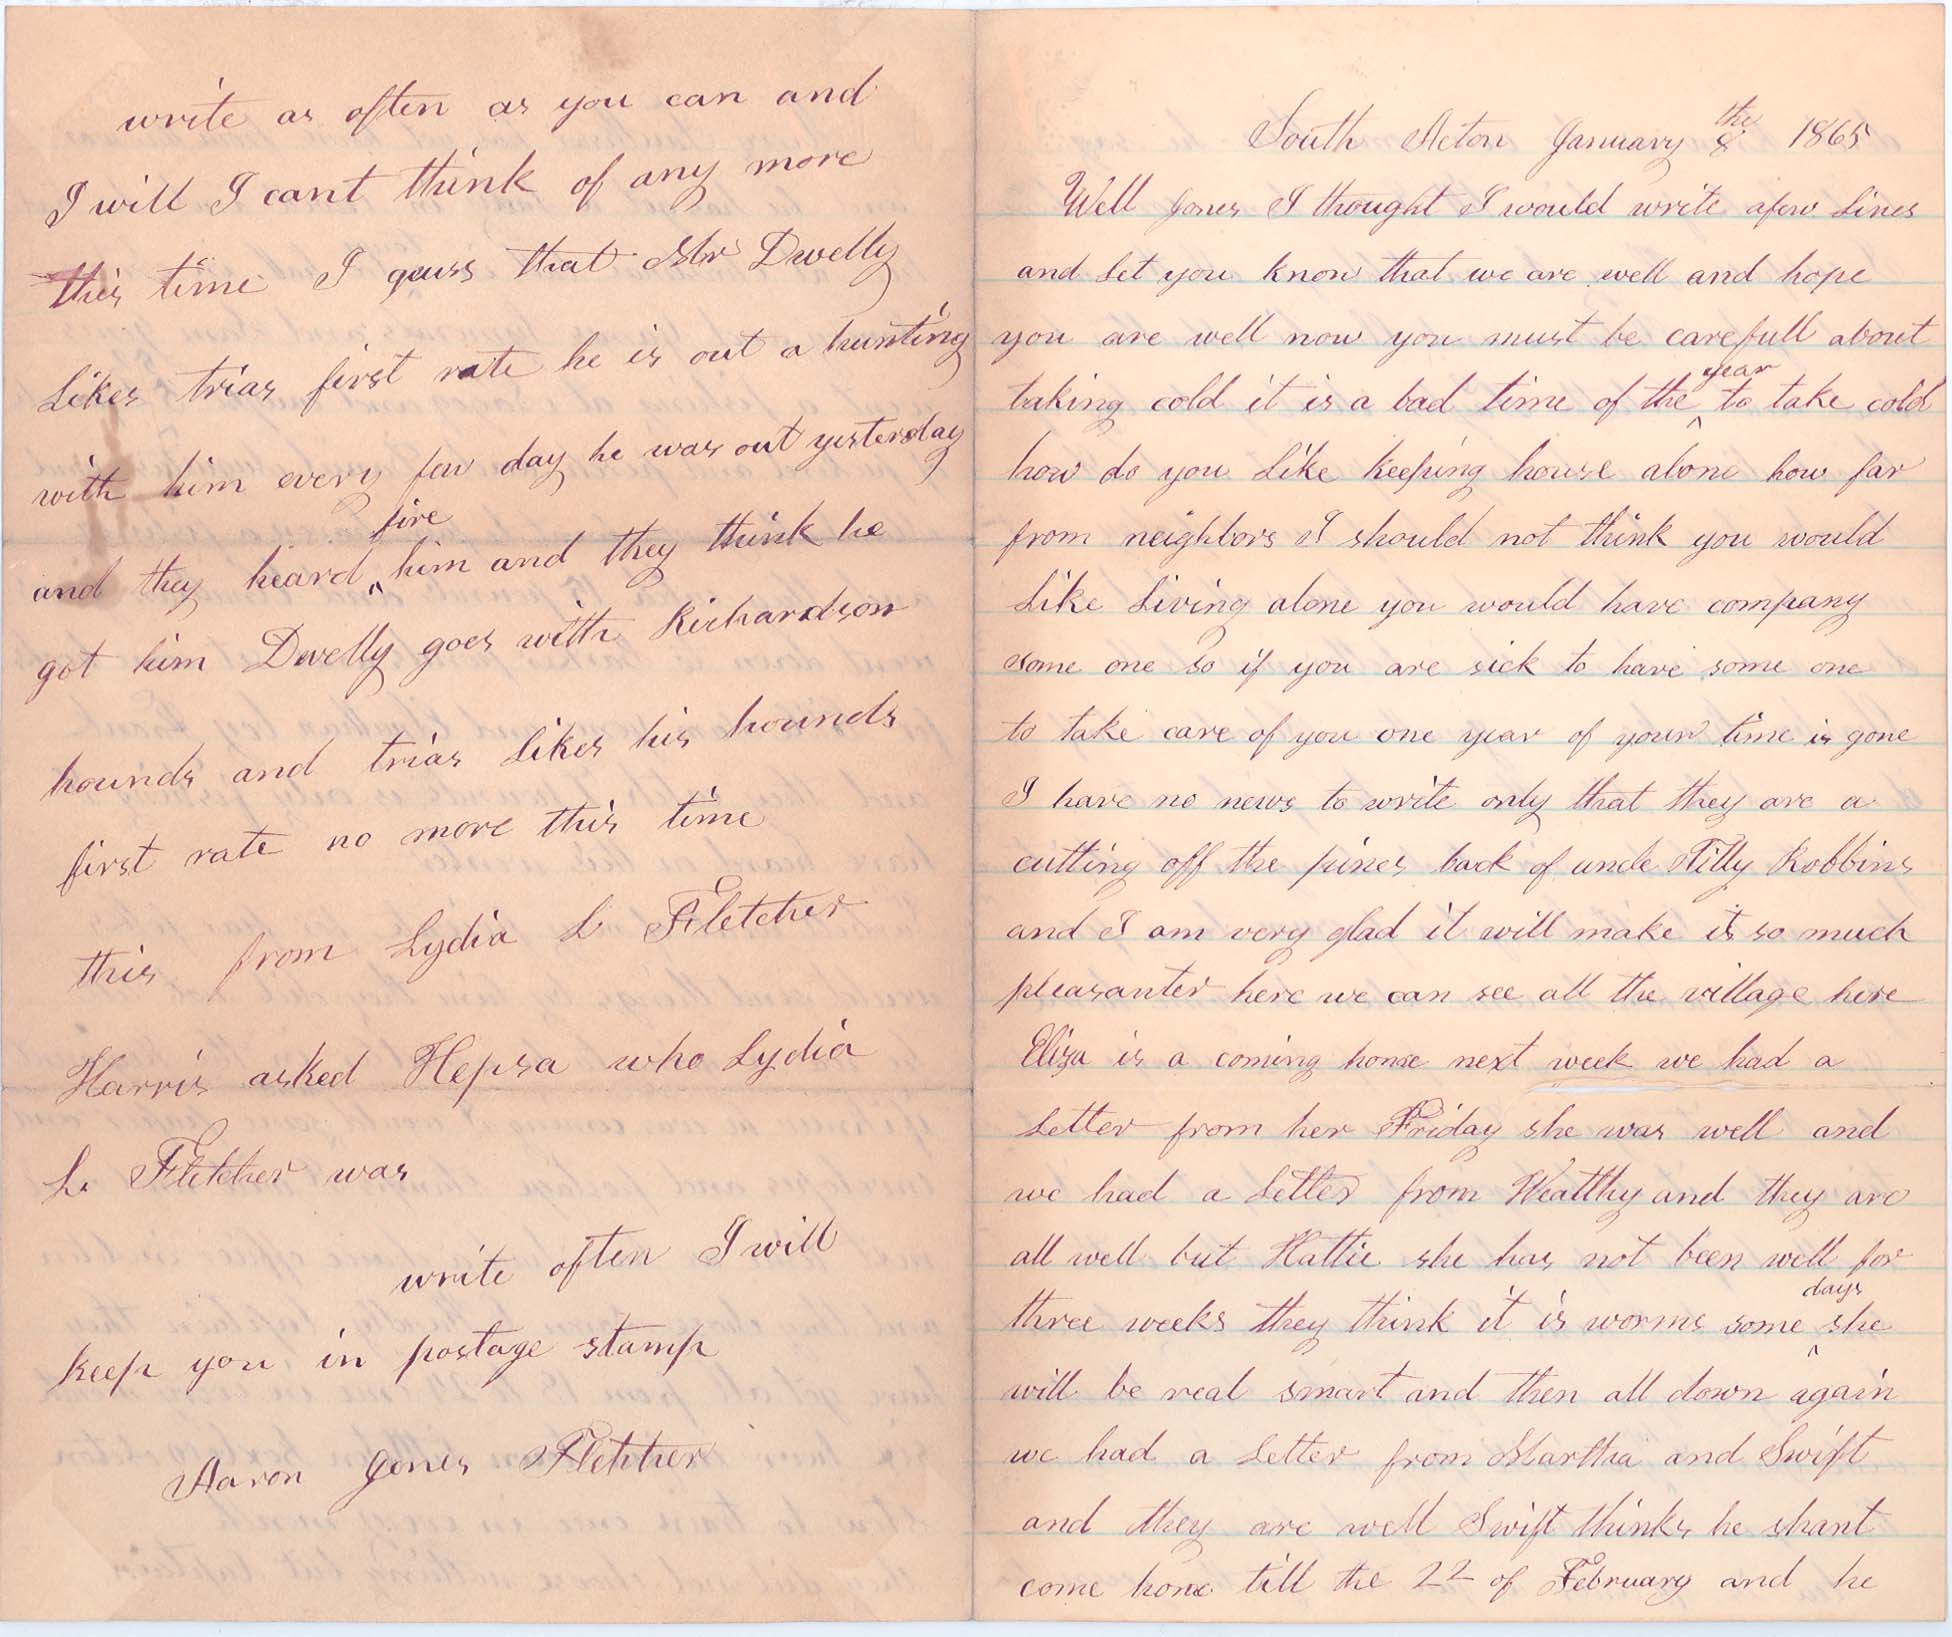 South Acton January 8 the 1865
Well Jones I thought I would write afew Lines
and Let you know that we are well and hope
you are well now you must be carefull about
taking cold it is a bad time of the year to take cold
how do you Like keeping house alone how far
from neighbors I should not think you would
Like Living alone you would have company
some one so if you are sick to have some one
to take care of you one year of your time is gone
I have no news to write only that they are a
cutting off the pines back of uncle Tilly Robbins
and I am very glad it will make it so much
pleasanter here we can see all the village here
Eliza is a coming home next week we had a
Letter from her Friday she was well and
we had a Letter from Wealthy and they are
all well but Hattie she has not been well for
three weeks they think it is worms some days she
will be real smart and then all down again
we had a Letter from Martha and Swift
and they are well Swift thinks he shant
come home till the 22 of February and he
write as often as you can and
I will I cant think of any more
this time I guess that Mr Dwelly
Likes trias first rate he is out a hunting
with him every few day he was out yesterday
and they heard fire him and they think he
got him Dwelly goes with Richardson
hounds and trias Likes his hounds
first rate no more this time
this from Lydia L Fletcher
Harris asked Hepsa who Lydia
L. Fletcher was
write often I will
keep you in postage stamp
Aaron Jones Fletcher